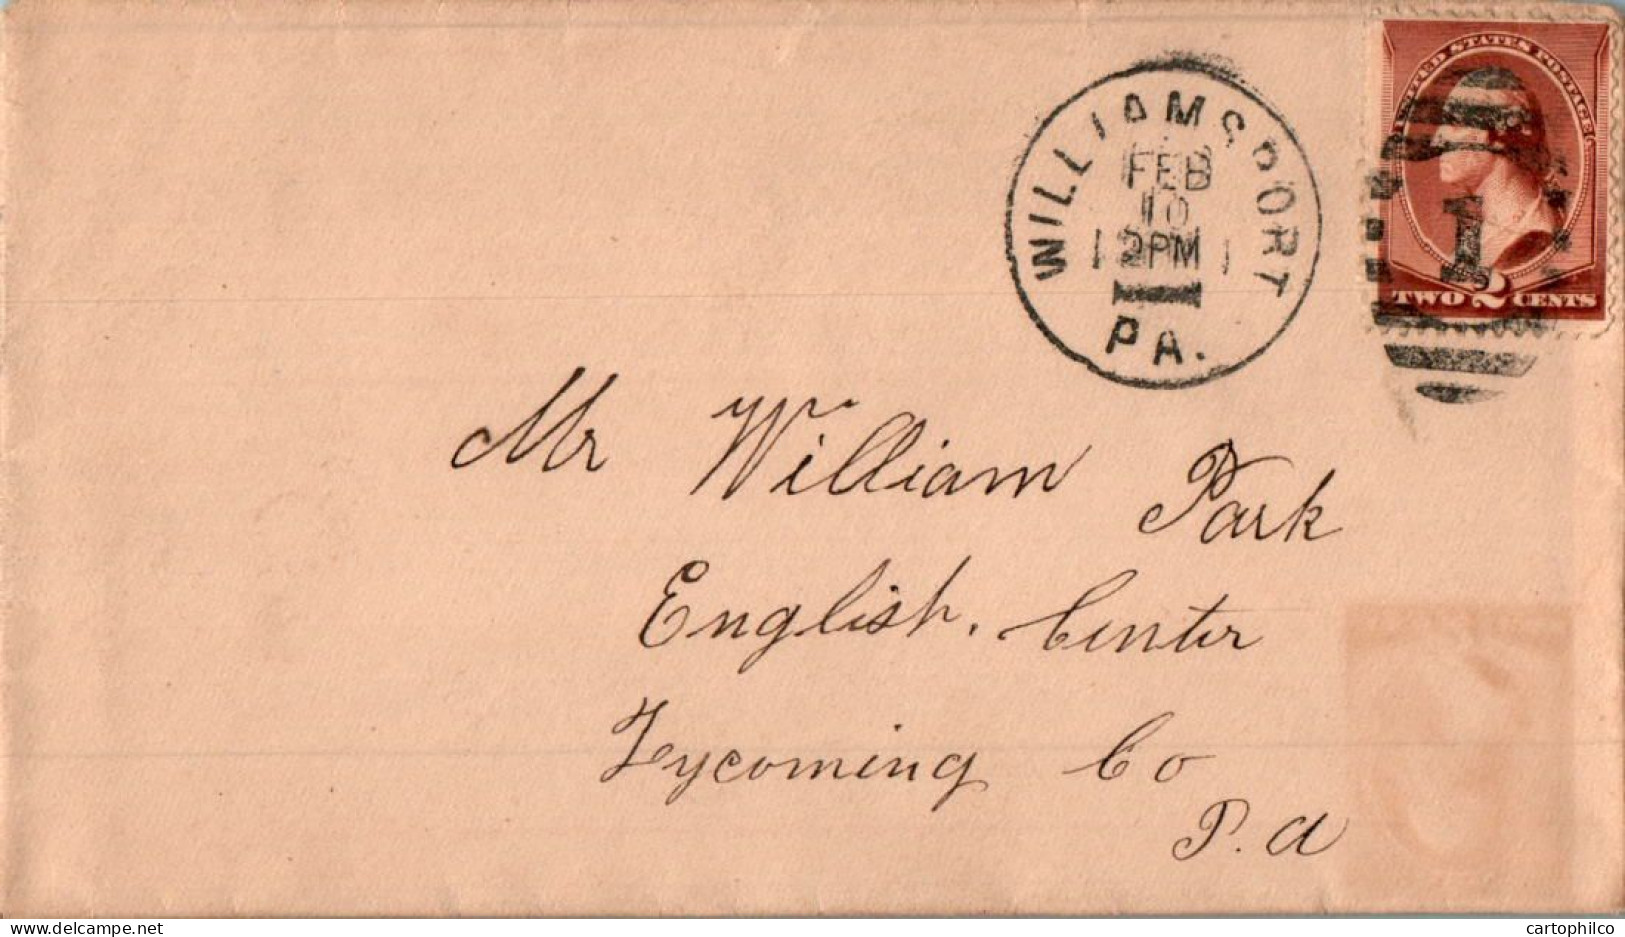 UNITED STATES POSTAGE
TWO 2 CENTS
1
WILLIAMSPORT
FEB
10
2PM
PA.
Mr William Park
English, Center
Lycoming Co
P.a
delcampe.net
cartophilco